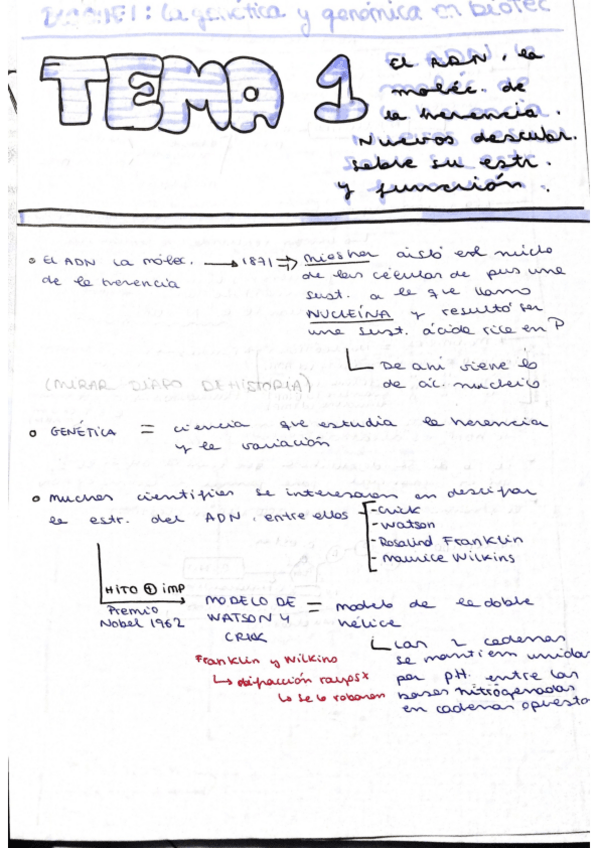 la genética y genómica en biotec
TEMA 1
El ADN, la
moléc. de
la herencia.
Nuevos descubr.
sobre su estr.
y función.
El ADN la moléc. → 1871 ⇒ Miesher aisló del núcleo
de la herencia
de las células de pus una
sust. a la que llamo
NUCLEÍNA y resultó ser
una sust. ácida rica en P
De ahí viene lo
de ác. nucleico
(MIRAR DIAPO DE HISTORIA)
GENÉTICA = ciencia que estudia la herencia
y la variación
Muchos científicos se interesaron en descifrar
la estr. del ADN, entre ellos
- Crick
- Watson
- Rosalind Franklin
- Maurice Wilkins
HITO + IMP
Premio
Nobel 1962
MODELO DE
WATSON Y
CRICK
= modelo de la doble
hélice
Las 2 cadenas
se mantienen unidas
por pH. entre las
bases nitrogenadas
en cadenas opuestas
Franklin y Wilkins
↳ difracción rayos x
↳ se lo robaron